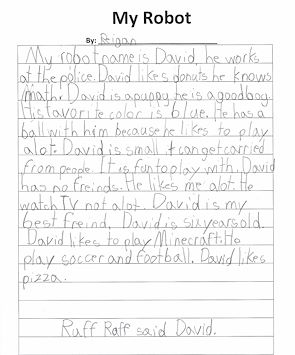 My Robot
By: Reigan
My robot name is David, he works
at the police. David likes donuts he knows
math. David is a puppy he is a good dog.
His favorite color is blue. He has a
ball with him because he likes to play
alot. David is small I can get carried
from people. It is fun to play with. David
has no freinds. He likes me alot. He
watch TV not alot. David is my
best freind. David is six years old.
David likes to play Minecraft. He
play soccer and football. David likes
pizza.
Raff Raff said David.